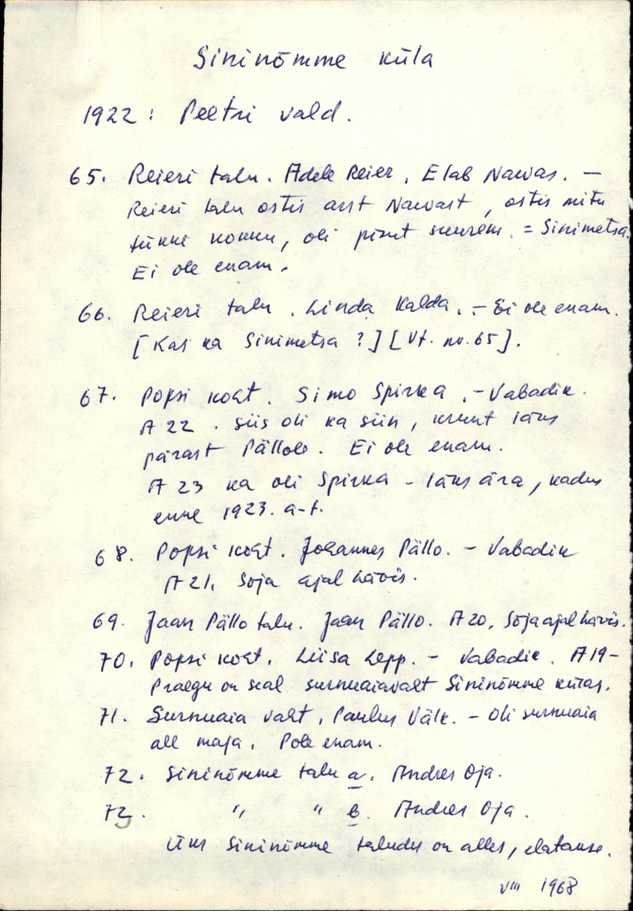 Sininõmme küla
1922: Peetri vald.
65. Reieri talu. Adele Reier, Elab Nawas. –
Reieri talu ostis arst Nawast, ostis mitu
tükki kokku, oli pisut suurem. = Sinimetsa.
Ei ole enam.
66. Reieri talu. Linda Kalda. – Ei ole enam.
[Kas ka Sinimetsa?] [Vt. nr. 65].
67. Popsi koht. Simo Spirka. – Vabadik.
A 22. siis oli ka siin, krunt läks
pärast Pällole. Ei ole enam.
A 23 ka oli Spirka – läks ära, kadus
enne 1923. a-t.
68. Popsi koht. Johannes Pällo. – Vabadik
A 21. Sõja ajal hävis.
69. Jaan Pällo talu. Jaan Pällo. A 20. Sõja ajal hävis.
70. Popsi koht. Liisa Lepp. – Vabadik. A 19 –
Praegu on seal surnuaiavaht Sininõmme külas.
71. Surnuaia vaht. Paulus Välk. – Oli surnuaia
all maja. Pole enam.
72. Sininõmme talu a. Andres Oja.
73. " " b. Andres Oja.
Üks Sininõmme taludes on alles, elatakse.
VIII 1968